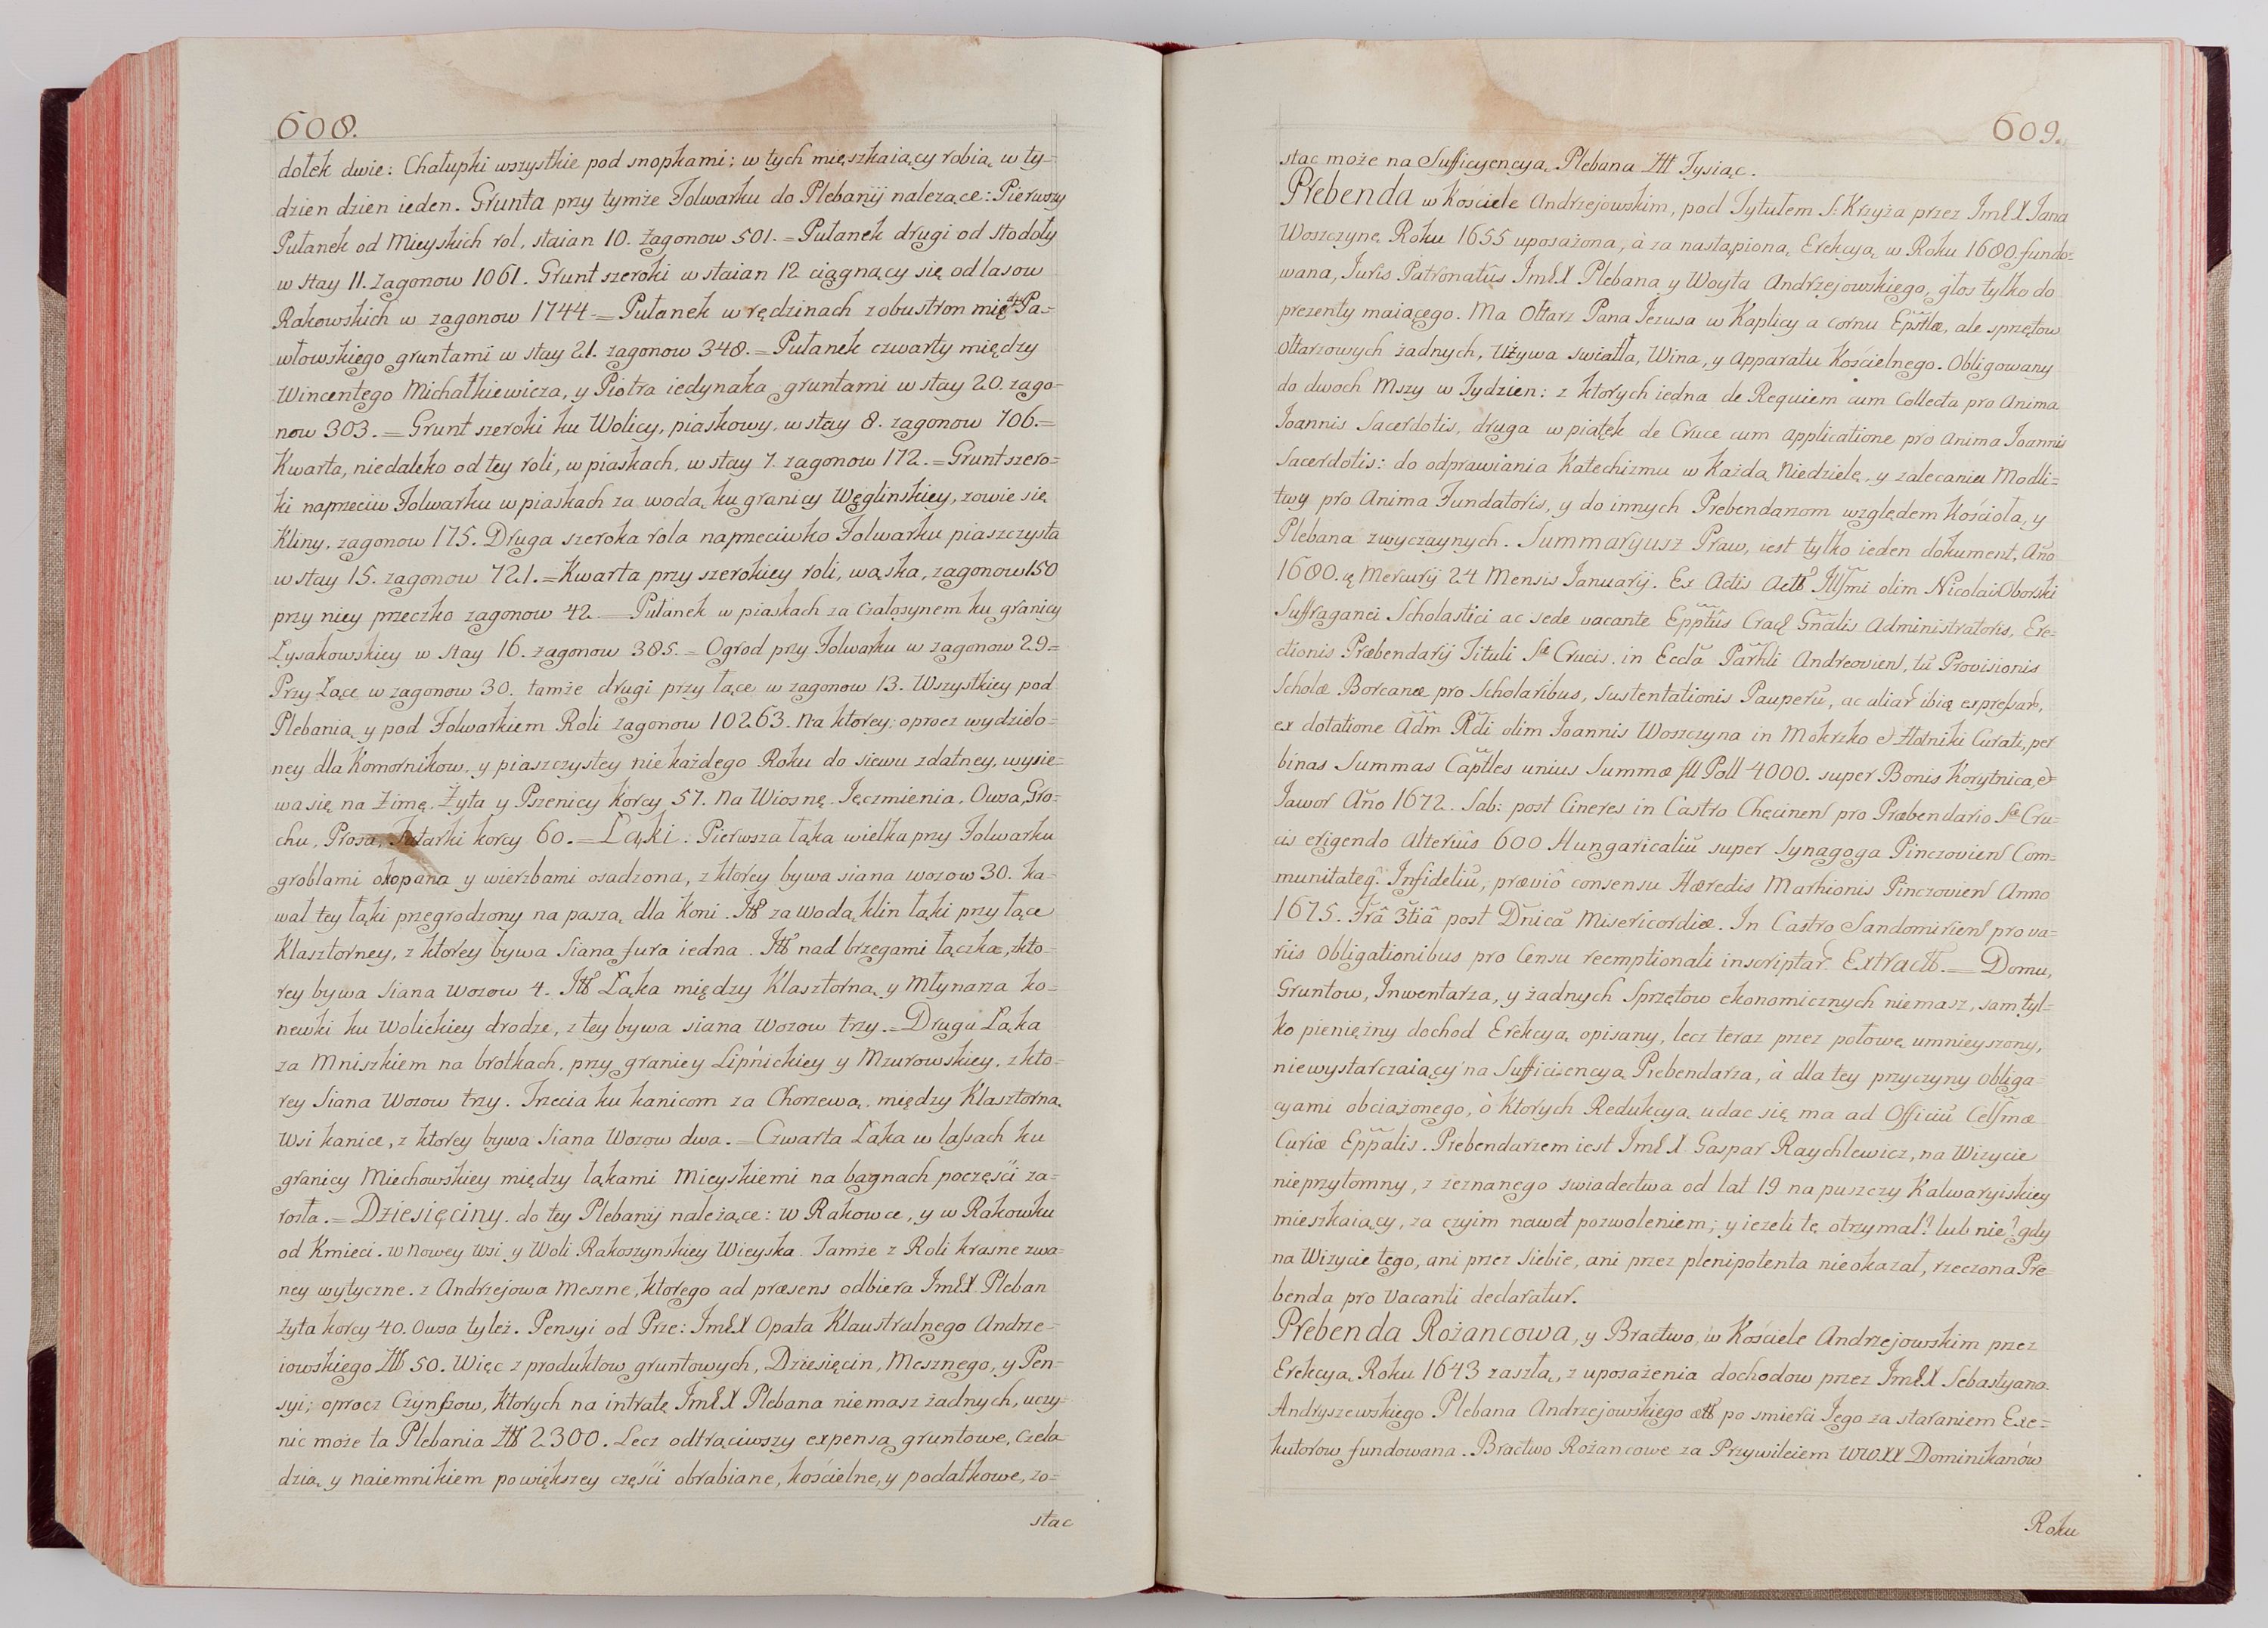 608.
dołek dwie: Chałupki wszystkie pod snopkami; w tych mięszkaiący robią w ty-
dzien dzien ieden. Grunta przy tymże Folwarku do Plebanij nalezące: Pierwszy
Pułanek od Mieyskich rol, staian 10. zagonow 501. = Pułanek drugi od Stodoły
w stay 11. zagonow 1061. Grunt szeroki w staian 12 ciągnący się od lasow
Rakowskich w zagonow 1744 = Pułanek w rędzinach z obustron mię Pa-
włowskiego gruntami w stay 21. zagonow 348. = Pułanek czwarty między
Wincentego Michałkiewicza, y Piotra iedynaka gruntami w stay 20. zago-
now 303. = Grunt szeroki ku Wolicy, piaskowy, w stay 8. zagonow 706. =
Kwarta, niedaleko od tey roli, w piaskach, w stay 7. zagonow 172. = Grunt szero=
ki naprzeciw Folwarku w piaskach za wodą, ku granicy Węglinskiey, zowie się
Kliny, zagonow 175. Druga szeroka rola naprzeciwko Folwarku piaszczysta
w stay 15. zagonow 721. = Kwarta przy szerokiey roli, wąska, zagonow 150
przy niey przeczko zagonow 42 = Pułanek w piaskach za Czałosynem ku granicy
Łysakowskiey w stay 16. zagonow 385. = Ogrod przy Folwarku w zagonow 29 =
Przy Łące w zagonow 30. tamże drugi przy łące w zagonow 13. Wszystkiey pod
Plebanią, y pod Folwarkiem Roli zagonow 10263. Na ktorey; oprocz wydzielo=
ney dla Komornikow, y piaszczystey nie każdego Roku do siewu zdatney, wysie=
wa się na Zimę Żyta y Pszenicy Korcy 57. Na Wiosnę Jęczmienia, Owsa, Gro=
chu, Prosa, Tatarki korcy 60. = Łąki. Pierwsza łąka wielka przy Folwarku
groblami okopana y wierzbami osadzona, z ktorey bywa siana wozow 30. ka-
wał tey łąki przegrodzony na paszą dla Koni. Itt za Wodą klin łąki przy łące
Klasztorney, z ktorey bywa Siana fura iedna. Itt nad brzegami łączka, z kto-
rey bywa Siana Wozow 4. Itt Łąka między Klasztorną y Młynarza ko=
newki ku Wolickiey drodze, z tey bywa siana Wozow trzy. = Druga Łąka
za Mniszkiem na brotkach, przy graniey Lipnickiey y Mzurowskiey, z kto=
rey Siana Wozow trzy. Trzecia ku kanicom za Chorzewą, między Klasztorną
Wsi kanice, z ktorey bywa Siana Wozow dwa. = Czwarta Łąka w lassach ku
granicy Miechowskiey między łąkami Mieyskiemi na bagnach poczęści za=
rosła. = Dziesięciny do tey Plebanij należące: w Rakowce, y w Rakowku
od Kmieci. w Nowey Wsi y Woli Rakoszynskiey Wieyska. Tamże z Roli krasne zwa=
ney wytyczne. z Andrzejowa Meszne, ktorego ad præsens odbiera JmX Pleban
żyta korcy 40. Owsa tyleż. Pensyi od Prze: JmX Opata Klaustralnego Andrze=
iowskiego Złt 50. Więc z produktow gruntowych, Dziesięcin, Mesznego, y Pen=
syi; oprocz Czynszow, Ktorych na intratę JmX Plebana nie masz żadnych, uczy=
nic może ta Plebania Złt 2300. Lecz odtrąciwszy expensa gruntowe, Czela=
dzią, y naiemnikiem powiększey części obrabiane, kościelne, y podatkowe, zo=
stac
609.
stac może na Sufficyencyą Plebana Złt Tysiąc.
Prebenda w Kościele Andrzejowskim, pod Tytułem S: Krzyża przez JmX Jana
Woszczynę Roku 1655 uposażona, à za nastąpioną Erekcyą w Roku 1680. fundo=
wana, Juris Patronatûs JmX Plebana y Woyta Andrzejowskiego, głos tylko do
prezenty maiącego. Ma Ołtarz Pana Jezusa w Kaplicy a cornu Epstlæ, ale sprzętow
Ołtarzowych żadnych, Używa swiatła, Wina, y Apparatu Kościelnego. Obligowany
do dwoch Mszy w Tydzien: z ktorych iedna de Requiem cum Collecta pro Anima
Joannis Sacerdotis, druga w piątęk de Cruce cum applicatione pro Anima Joannis
Sacerdotis: do odprawiania Katechizmu w Każdą Niedzielę, y zalecania Modli=
twy pro Anima Fundatoris, y do innych Prebendarzom względem Kościoła, y
Plebana zwyczaynych. Summaryusz Praw, iest tylko ieden dokument, Año
1680. Mercurij 24 Mensis Januarij. Ex Actis Illsmi olim Nicolai Oborski
Suffraganei Scholastici ac sede vacante Epptûs Crac Gñalis Administratoris, Ere=
ctionis Præbendarij Tituli Crucis in Eccla Parhli Andreovien, tũ Provisionis
Scholæ Borcanæ pro Scholaribus, Sustentationis Pauperũ, ac aliar ibiq expressar,
ex dotatione Adm Rdi olim Joannis Woszczyna in Mokrzko et Złotniki Curati, per
binas Summas Captles unius Summæ fll Poll 4000. super Bonis Korytnica, et
Jawor Año 1672. Sab: post Cineres in Castro Chęcinen pro Præbendario Cru=
cis erigendo Alterius 600 Hungaricaliũ super Synagoga Pinczovien Com=
munitateq Infideliũ, præviô consensu Hæredis Marhionis Pinczovien Anno
1675. Frã 3tiã post Dñicã Misericordiæ. In Castro Sandomirien pro va=
riis Obligationibus pro Censu reemptionali inscriptar. Extractt. = Domu,
Gruntow, Inwentarza, y żadnych Sprzętow ekonomicznych niemasz, sam tyl=
ko pieniężny dochod Erekcyą opisany, lecz teraz przez połowę umnieyszony,
niewystarczaiący na Sufficiencyą Prebendarza, à dla tey przyczyny Obliga=
cyami obciażonego, ò Ktorych Redukcyą udac się ma ad Officiũ Celsmæ
Curiæ Eppalis. Prebendarzem iest JmX Gaspar Raychlewicz, na Wizycie
nieprzytomny, z zeznanego swiadectwa od lat 19 na puszczy Kalwaryiskiey
mieszkaiący, za czyim nawet pozwoleniem; y iezeli te otrzymał? lub nie? gdy
na Wizycie tego, ani przez Siebie, ani przez plenipotenta nieokazał, rzeczona Pre
benda pro Vacanti declaratur.
Prebenda Rożancowa, y Bractwo, w Kościele Andrzejowskim przez
Erekcyą Roku 1643 zaszłą, z uposażenia dochodow przez JmX Sebastyana
Andryszewskiego Plebana Andrzejowskiego po smierci Jego za staraniem Exe=
kutorow fundowana. Bractwo Rożancowe za Przywileiem WWXX Dominikanów
Roku